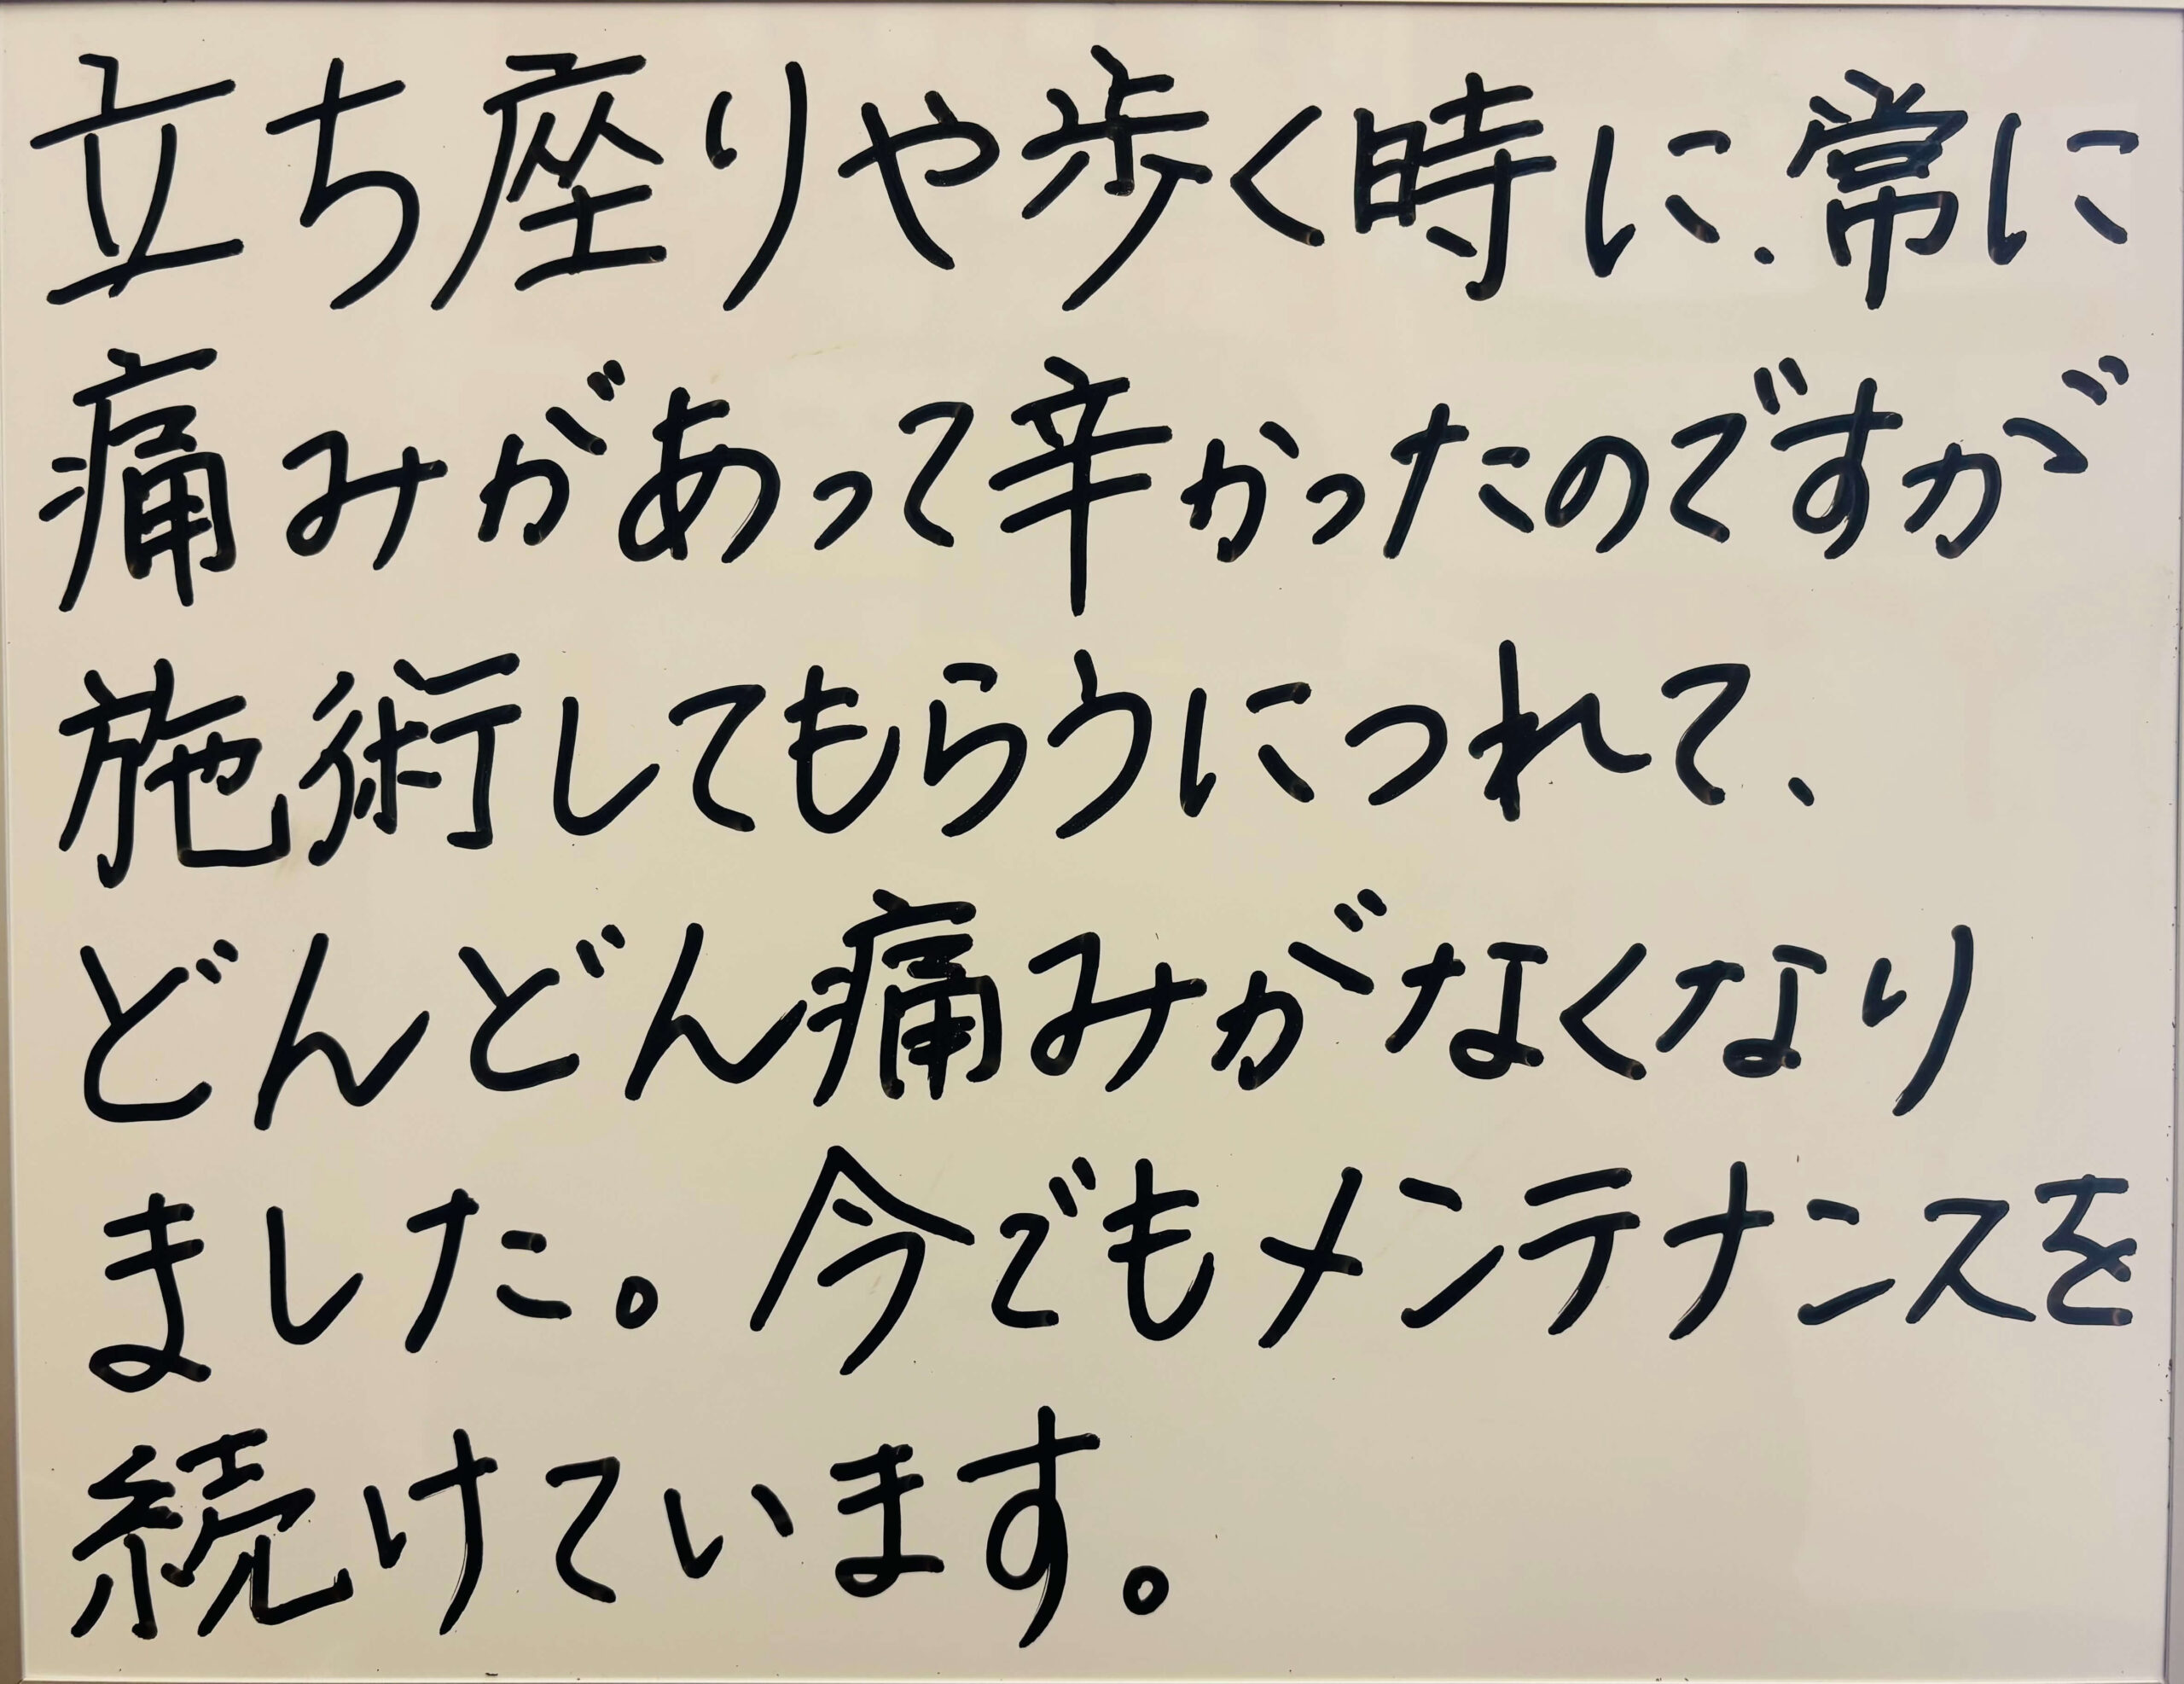 立ち座りや歩く時に、常に
痛みがあって辛かったのですが
施術してもらうにつれて、
どんどん痛みがなくなり
ました。今でもメンテナンスを
続けています。